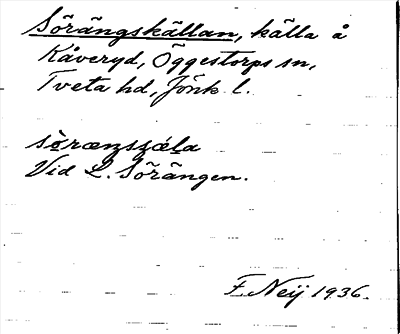 Sörängskällan, källa å
Kåveryd, Öggestorps sn,
Tveta hd, Jönk. l.
Vid L. Sörängen.
F. Neij 1936.